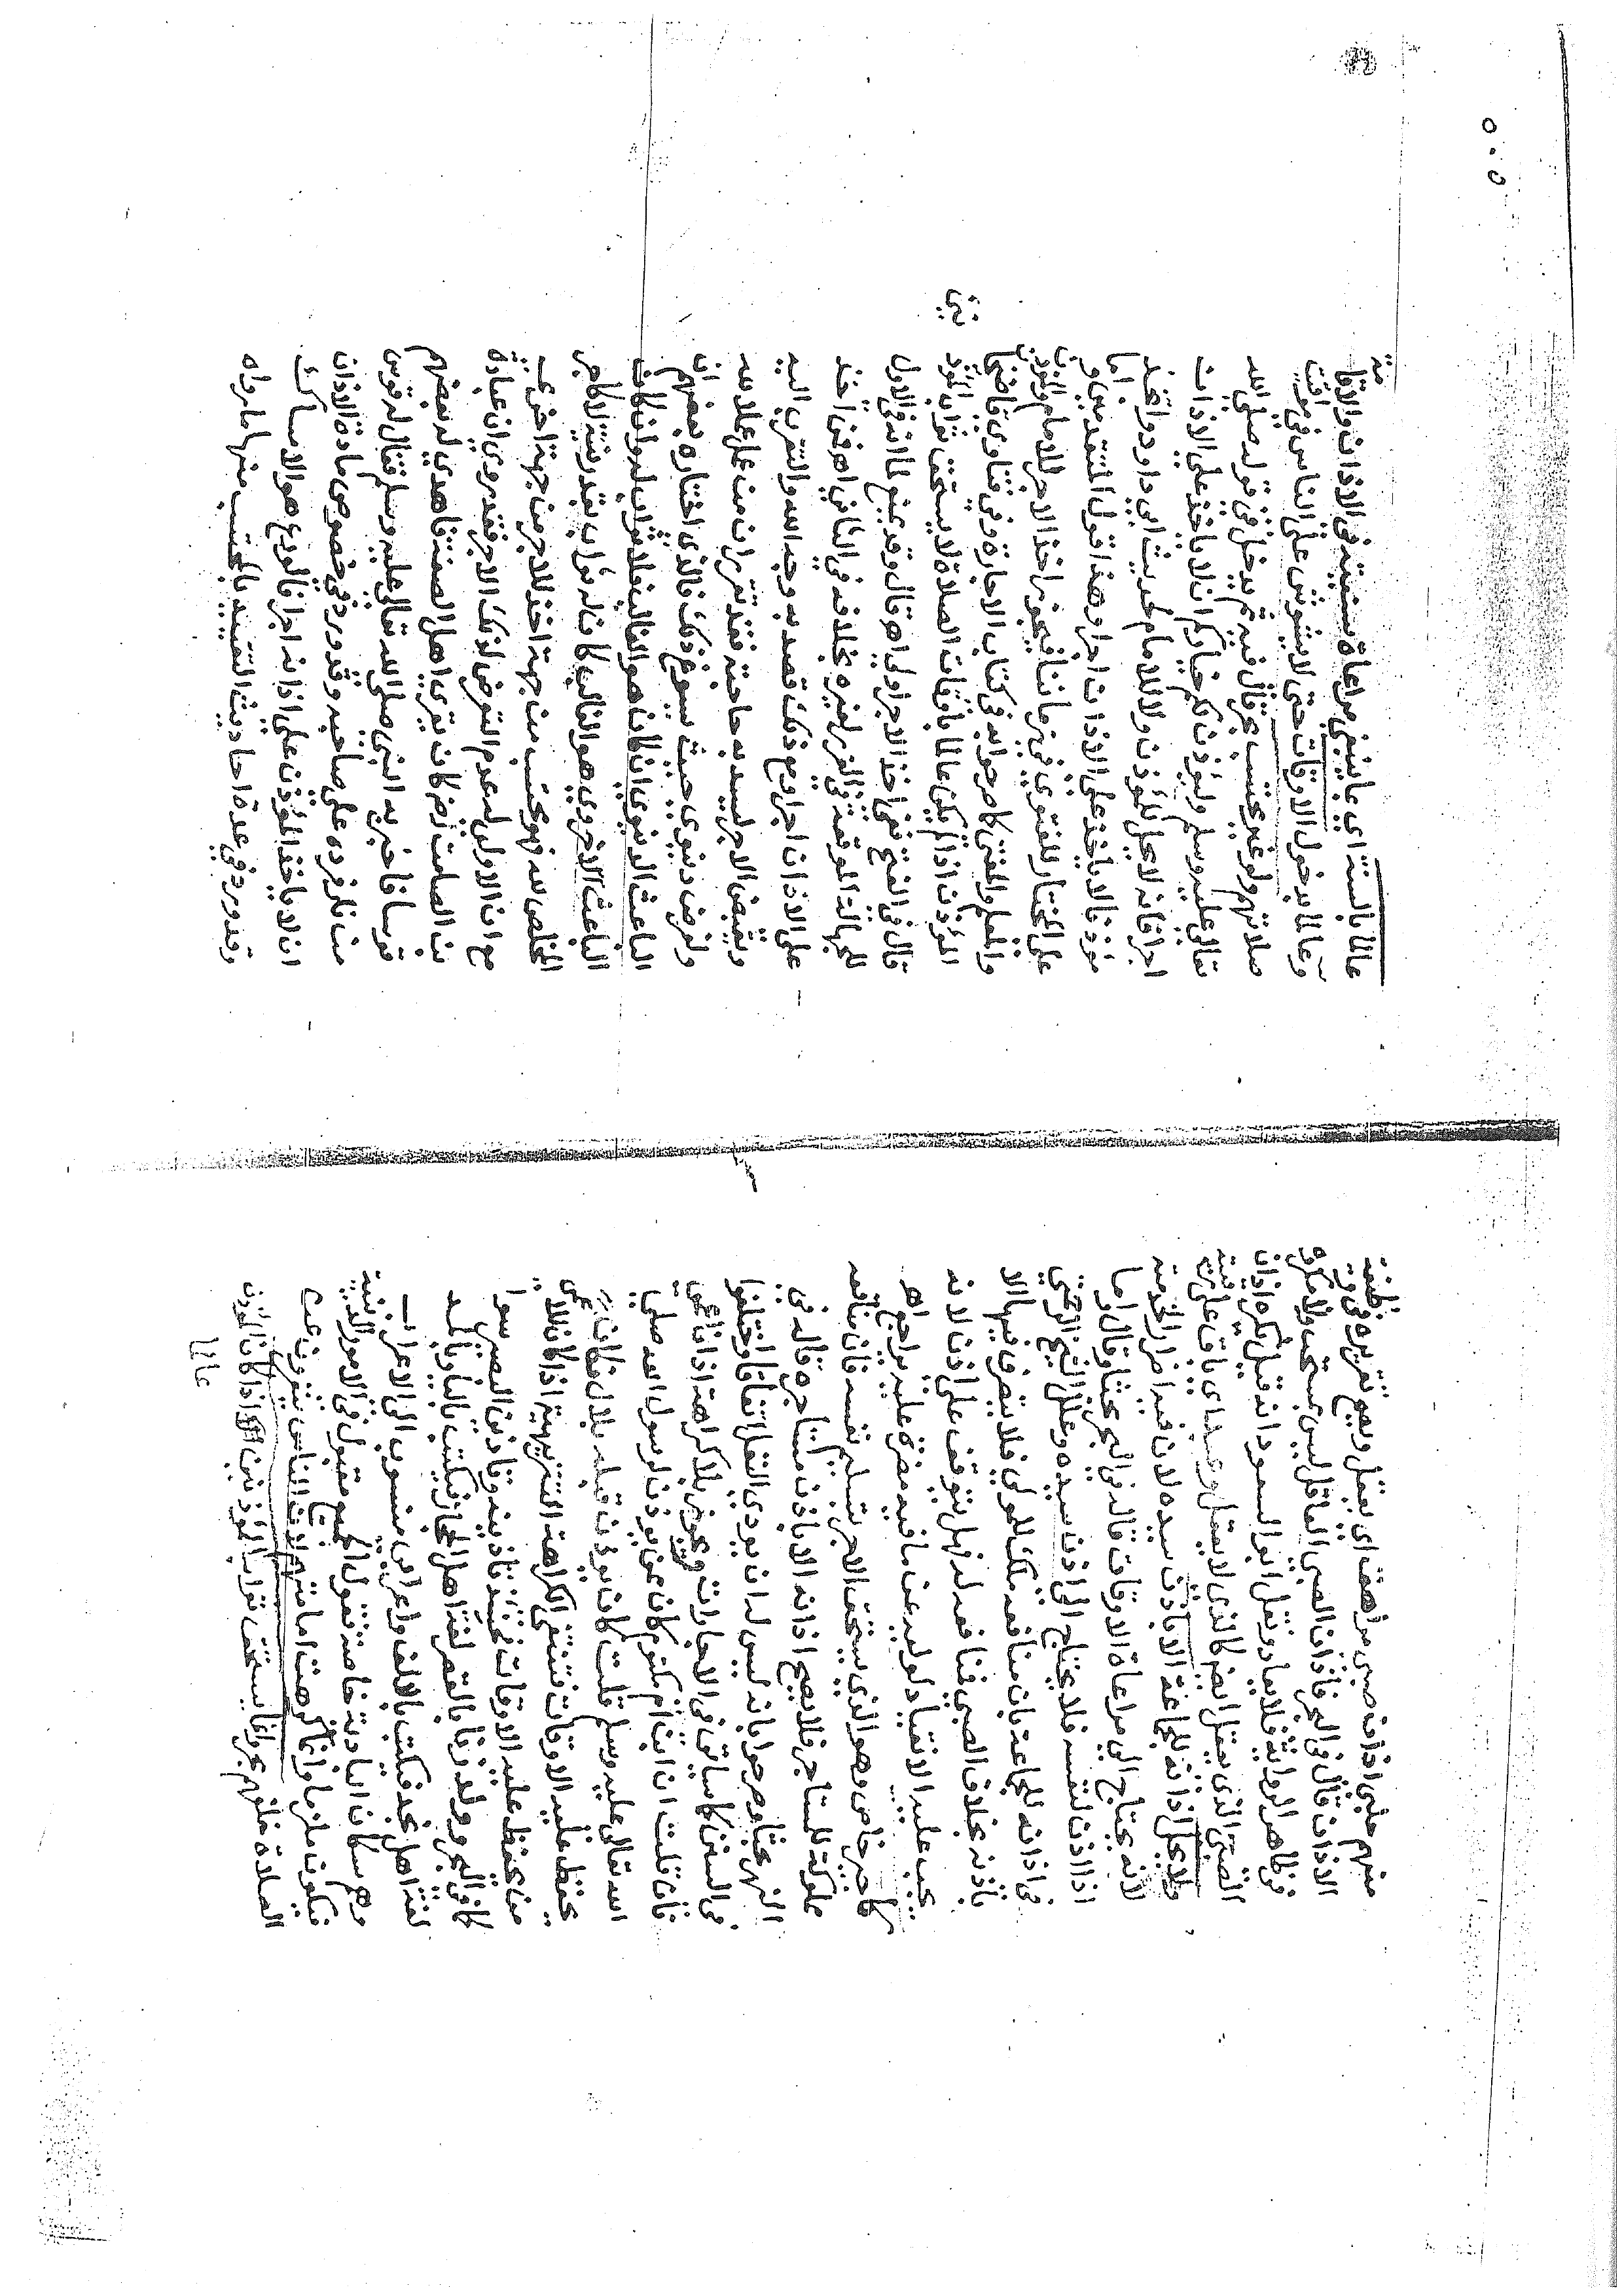 منهم حلبي اذان صبي مراهق اي يعقل ويصح تقريره في وظيفة
الاذان قال في البحر فاذان الصبي العاقل ليس بمستحب ولا مكروه
في ظاهر الرواية فلا يعاد ونقل ابو السعود انه قيل يكره اذان
الصبي الذي يعقل ايضا كالذي لا يعقل وعبد اي باق على رقيته
ولا يحل اذانه للجماعة الا باذن سيده لان فيه اضرار الخدمة
لانه يحتاج الى مراعاة الاوقات قاله في البحر بحثا وقال واما
اذا اذن لنفسه فلا يحتاج الى اذن سيده وعلل الشيخ الرحمتي
في اذانه للجماعة بان منافعه ملك للمولى فلا يتصرف فيها الا
باذنه بخلاف الصبي فمنافعه له فهل يتوقف على اذن لانه
يجب عليه الانقياد لوليه عن ما فيه مضرة عليه يراجع اهـ
كاجير خاص وهو الذي يستحق الاجر بتسليم نفسه فان منافعه
مملوكة للمستاجر فلا يصح اذانه الا باذن مستاجره قاله في
النهر بحثا وصرحوا بانه ليس له ان يودي النفل اتفاقا واختلفوا
في السنن كما سياتي في الاجارات ويجوز بلا كراهة اذان اعمى
فان قلت ان ابن ام مكتوم كان عمى يوذن لرسول الله صلى
الله تعالى عليه وسلم قلت كان يوذن قبله بلال فكان
يحفظ عليه الاوقات فتنتفي الكراهة التنزيهية اذا كان للاعمى
من يحفظ عليه الاوقات فحينئذ تاذينه وتاذين البصير سوا
كما في البحر وولد زنا بالقصر لغة اهل الحجاز فيكتب بالياء وبالمد
لغة اهل نجد فيكتب بالالف واعرابي منسوب الى الاعراب
وهم سكان البادية خاصة فقول الجميع مقبول في الامور الدينية
فيكون ملزما وانما كرهت امامتهم لان الناس ينفرون عن
الصلاة خلفهم بحر وانما يستحق ثواب المؤذنين اذا كان المؤذن
عالما
عالما بالسنة اي بما ينبغي مراعاة سنيته في الاذان والاقامة
وعالما بدخول الاوقات حتى لا يشوش على الناس في مواقيت
صلاتهم ولو غير محتسب بحر قال فيه ثم يدخل في قوله صلى الله
تعالى عليه وسلم وليؤذن لكم خياركم ان لا ياخذ على الاذان
اجرا فانه لا يحل للمؤذن ولا للامام لحديث ابي داود واتخذ
موذنا لا ياخذ على الاذان اجرا وهذا قول المتقدمين اما
على المختار للفتوى في زماننا فيجوز اخذ الاجر للامام والمؤذن
والمعلم والمفتي كما صرحوا به في كتاب الاجارة وفي فتاوى قاضي
المؤذن اذا لم يكن عالما باوقات الصلاة لا يستحق ثواب المؤذنين
قال في الفتح ففي اخذ الاجر اولى اهـ قال وقد يمنع لما انه في الاول
للجهالة الموقعة في الغرر لغيره بخلافه في الثاني اهـ فمن اخذ
على الاذان اجرا ومع ذلك قصد به وجه الله والتقرب اليه
ويقبض الاجر ليسد به حاجته فقد تقرر ان من عمل عملا لله
ولغرض دنيوي بحيث يسوغ ذلك فالذي اختاره بعضهم ان
الباعث الدنيوي ان كان هو الغالب فلا ثواب له وان كان
الباعث الاخروي هو الغالب كان له ثواب بقدر نيته الا كما
المخلص لله فهو محتسب من جهة اخذ للاجر من جهة اخرى
مع ان الاولى له عدم التعرض لذلك الاجر فقد روي ان عبادة
بن الصامت رضي كان يقري اهل الصفة فاهدى له بعضهم
قوسا فاخبر به النبي صلى الله تعالى عليه وسلم فقال له قوس
من نار فرده على صاحبه وقد ورد في خصوص مادة الاذان
ان لا ياخذ المؤذن على اذانه اجرا فالورع هو الامساك
وقد ورد في عدة احاديث التقييد بالمحتسب منها ما رواه